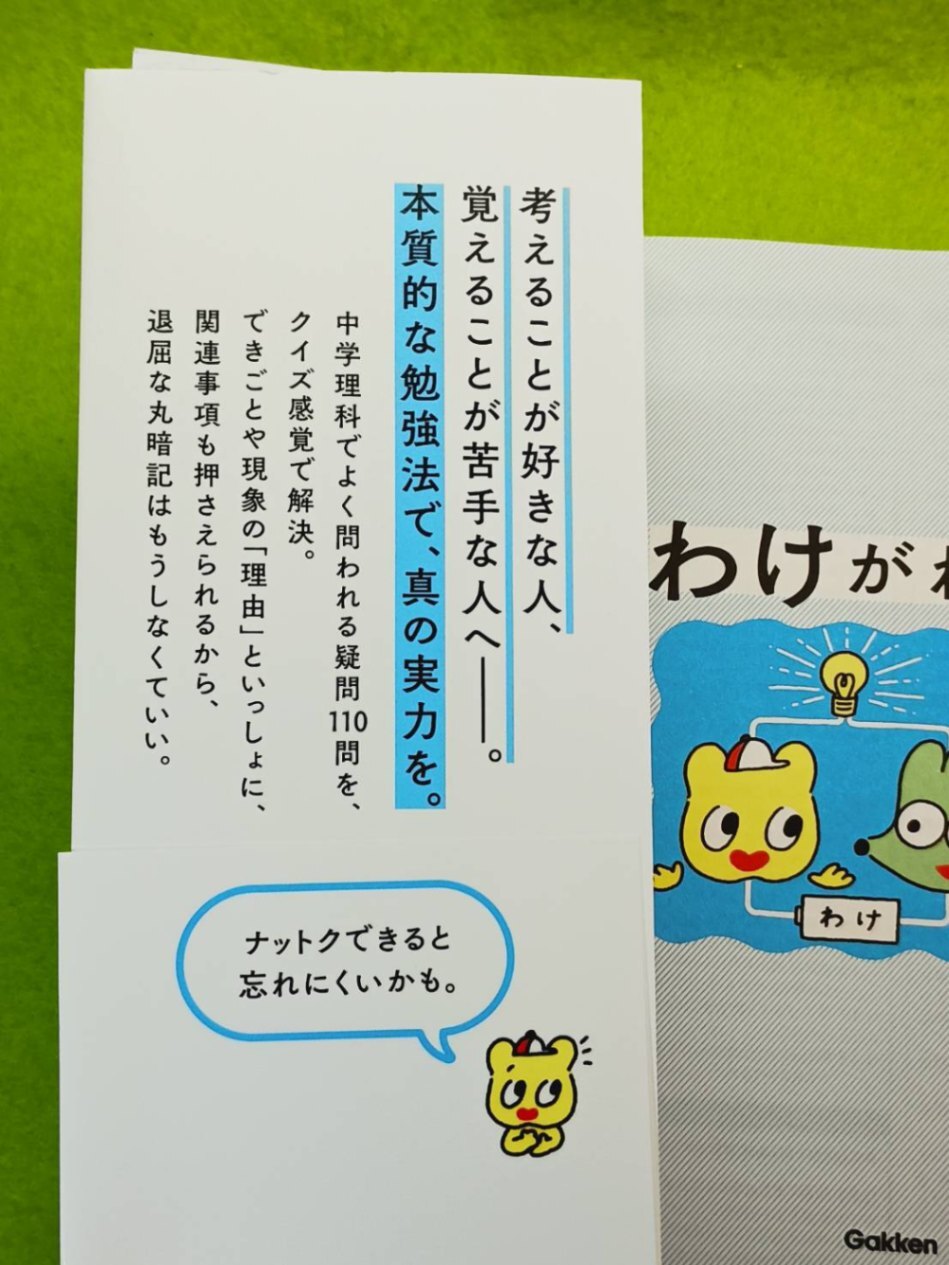 考えることが好きな人、
覚えることが苦手な人へ――。
本質的な勉強法で、真の実力を。
中学理科でよく問われる疑問110問を、
クイズ感覚で解決。
できごとや現象の「理由」といっしょに、
関連事項も押さえられるから、
退屈な丸暗記はもうしなくていい。
ナットクできると
忘れにくいかも。
わけがわ
わけ
Gakken